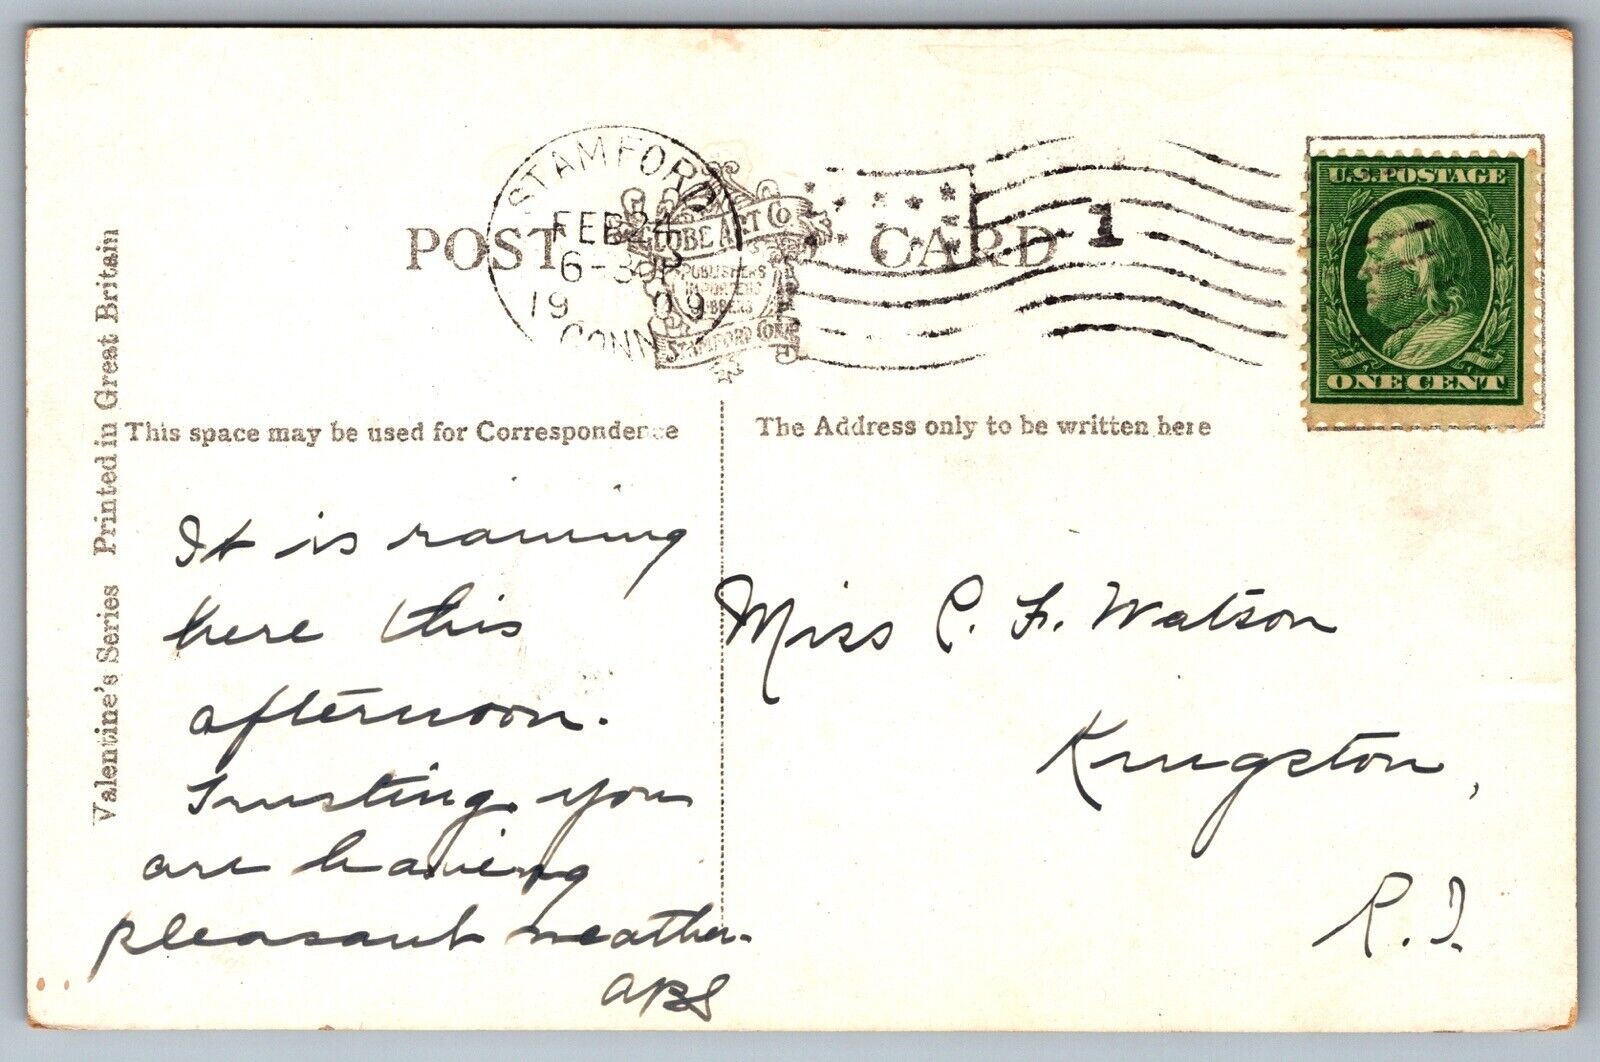 POST CARD
STAMFORD
FEB 24
6-30P
1909
CONN.
GLOBE ART CO.
PUBLISHERS
IMPORTERS
JOBBERS
STAMFORD CONN.
1
U.S. POSTAGE
ONE CENT
Valentine's Series Printed in Great Britain
This space may be used for Correspondence
The Address only to be written here
It is raining
here this
afternoon.
Trusting you
are having
pleasant weather.
ABS
Miss C. F. Watson
Kingston,
R.I.